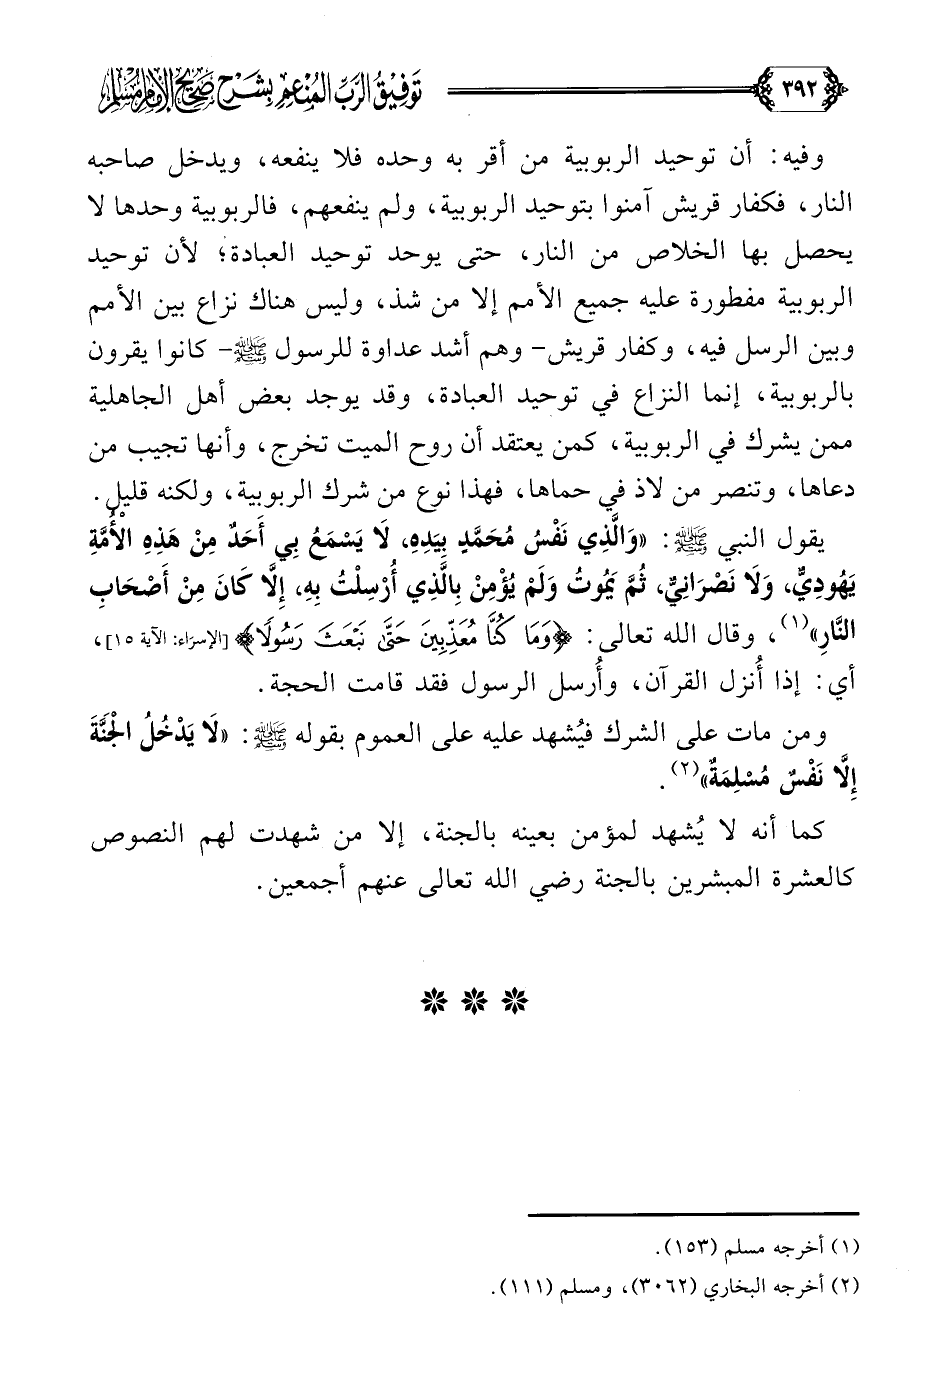 ٣٩٢ توفيق الرب المنعم بشرح صحيح الإمام مسلم
وفيه: أن توحيد الربوبية من أقر به وحده فلا ينفعه، ويدخل صاحبه
النار، فكفار قريش آمنوا بتوحيد الربوبية، ولم ينفعهم، فالربوبية وحدها لا
يحصل بها الخلاص من النار، حتى يوحد توحيد العبادة؛ لأن توحيد
الربوبية مفطورة عليه جميع الأمم إلا من شذ، وليس هناك نزاع بين الأمم
وبين الرسل فيه، وكفار قريش- وهم أشد عداوة للرسول ﷺ- كانوا يقرون
بالربوبية، إنما النزاع في توحيد العبادة، وقد يوجد بعض أهل الجاهلية
ممن يشرك في الربوبية، كمن يعتقد أن روح الميت تخرج، وأنها تجيب من
دعاها، وتنصر من لاذ في حماها، فهذا نوع من شرك الربوبية، ولكنه قليل.
يقول النبي ﷺ: «وَالَّذِي نَفْسُ مُحَمَّدٍ بِيَدِهِ، لَا يَسْمَعُ بِي أَحَدٌ مِنْ هَذِهِ الْأُمَّةِ
يَهُودِيٌّ، وَلَا نَصْرَانِيٌّ، ثُمَّ يَمُوتُ وَلَمْ يُؤْمِنْ بِالَّذِي أُرْسِلْتُ بِهِ، إِلَّا كَانَ مِنْ أَصْحَابِ
النَّارِ»(١)، وقال الله تعالى: ﴿وَمَا كُنَّا مُعَذِّبِينَ حَتَّىٰ نَبْعَثَ رَسُولًا﴾ [الإسرَاء: الآية ١٥]،
أي: إذا أُنزل القرآن، وأُرسل الرسول فقد قامت الحجة.
ومن مات على الشرك فيُشهد عليه على العموم بقوله ﷺ: «لَا يَدْخُلُ الْجَنَّةَ
إِلَّا نَفْسٌ مُسْلِمَةٌ»(٢).
كما أنه لا يُشهد لمؤمن بعينه بالجنة، إلا من شهدت لهم النصوص
كالعشرة المبشرين بالجنة رضي الله تعالى عنهم أجمعين.
(١) أخرجه مسلم (١٥٣).
(٢) أخرجه البخاري (٣٠٦٢)، ومسلم (١١١).